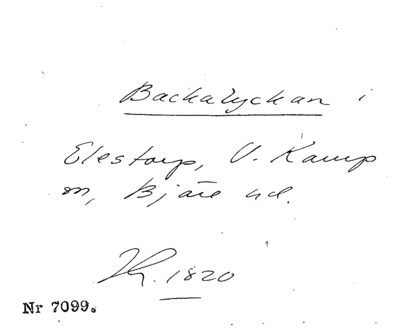 Backalyckan i
Elestorp, V. Karup
sn, Bjäre hd.
Kr. 1820
Nr 7099.